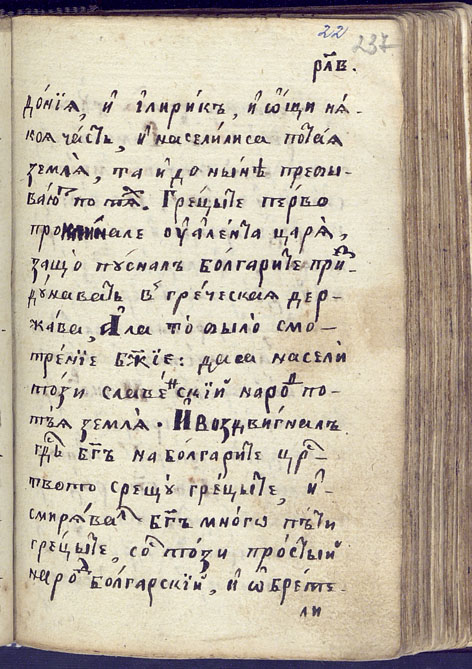 22
237
рл҃в.
до́нїѧ, и҆ і҆лирикъ, и҆ ѿщи нѧ-
коѧ ча́сть, и҆ насели́лиса поⷮаѧ
землѧ̀, та и҆ до ны́нѣ превы-
ваюⷮ по тѧⷯ. Гре́цыⷮе пе́рво
проклинале оу҆але́нта царѧ̀,
защо̀ пу́сналъ болгариⷮе приⷣ-
ду́наватъ въ гре́ческаѧ дер-
жава, А҆ла то̀ было смо-
тре́нїе бж҃їе: да са населѝ
този славеⷩскїй нароⷣ по-
тѣѧ землѧ̀. И҆ воздви́гналъ
гдⷭь бг҃ъ на болгариⷮе црⷭ-
твото срещꙋ̀ гре́цыⷮе, и҆-
смирѧ́ваⷧ бг҃ъ мно́гѡ пѣти
гре́цыⷮе, со този про́стый
нароⷣ болгарскїй, и҆ ѡ҆брете-
ли